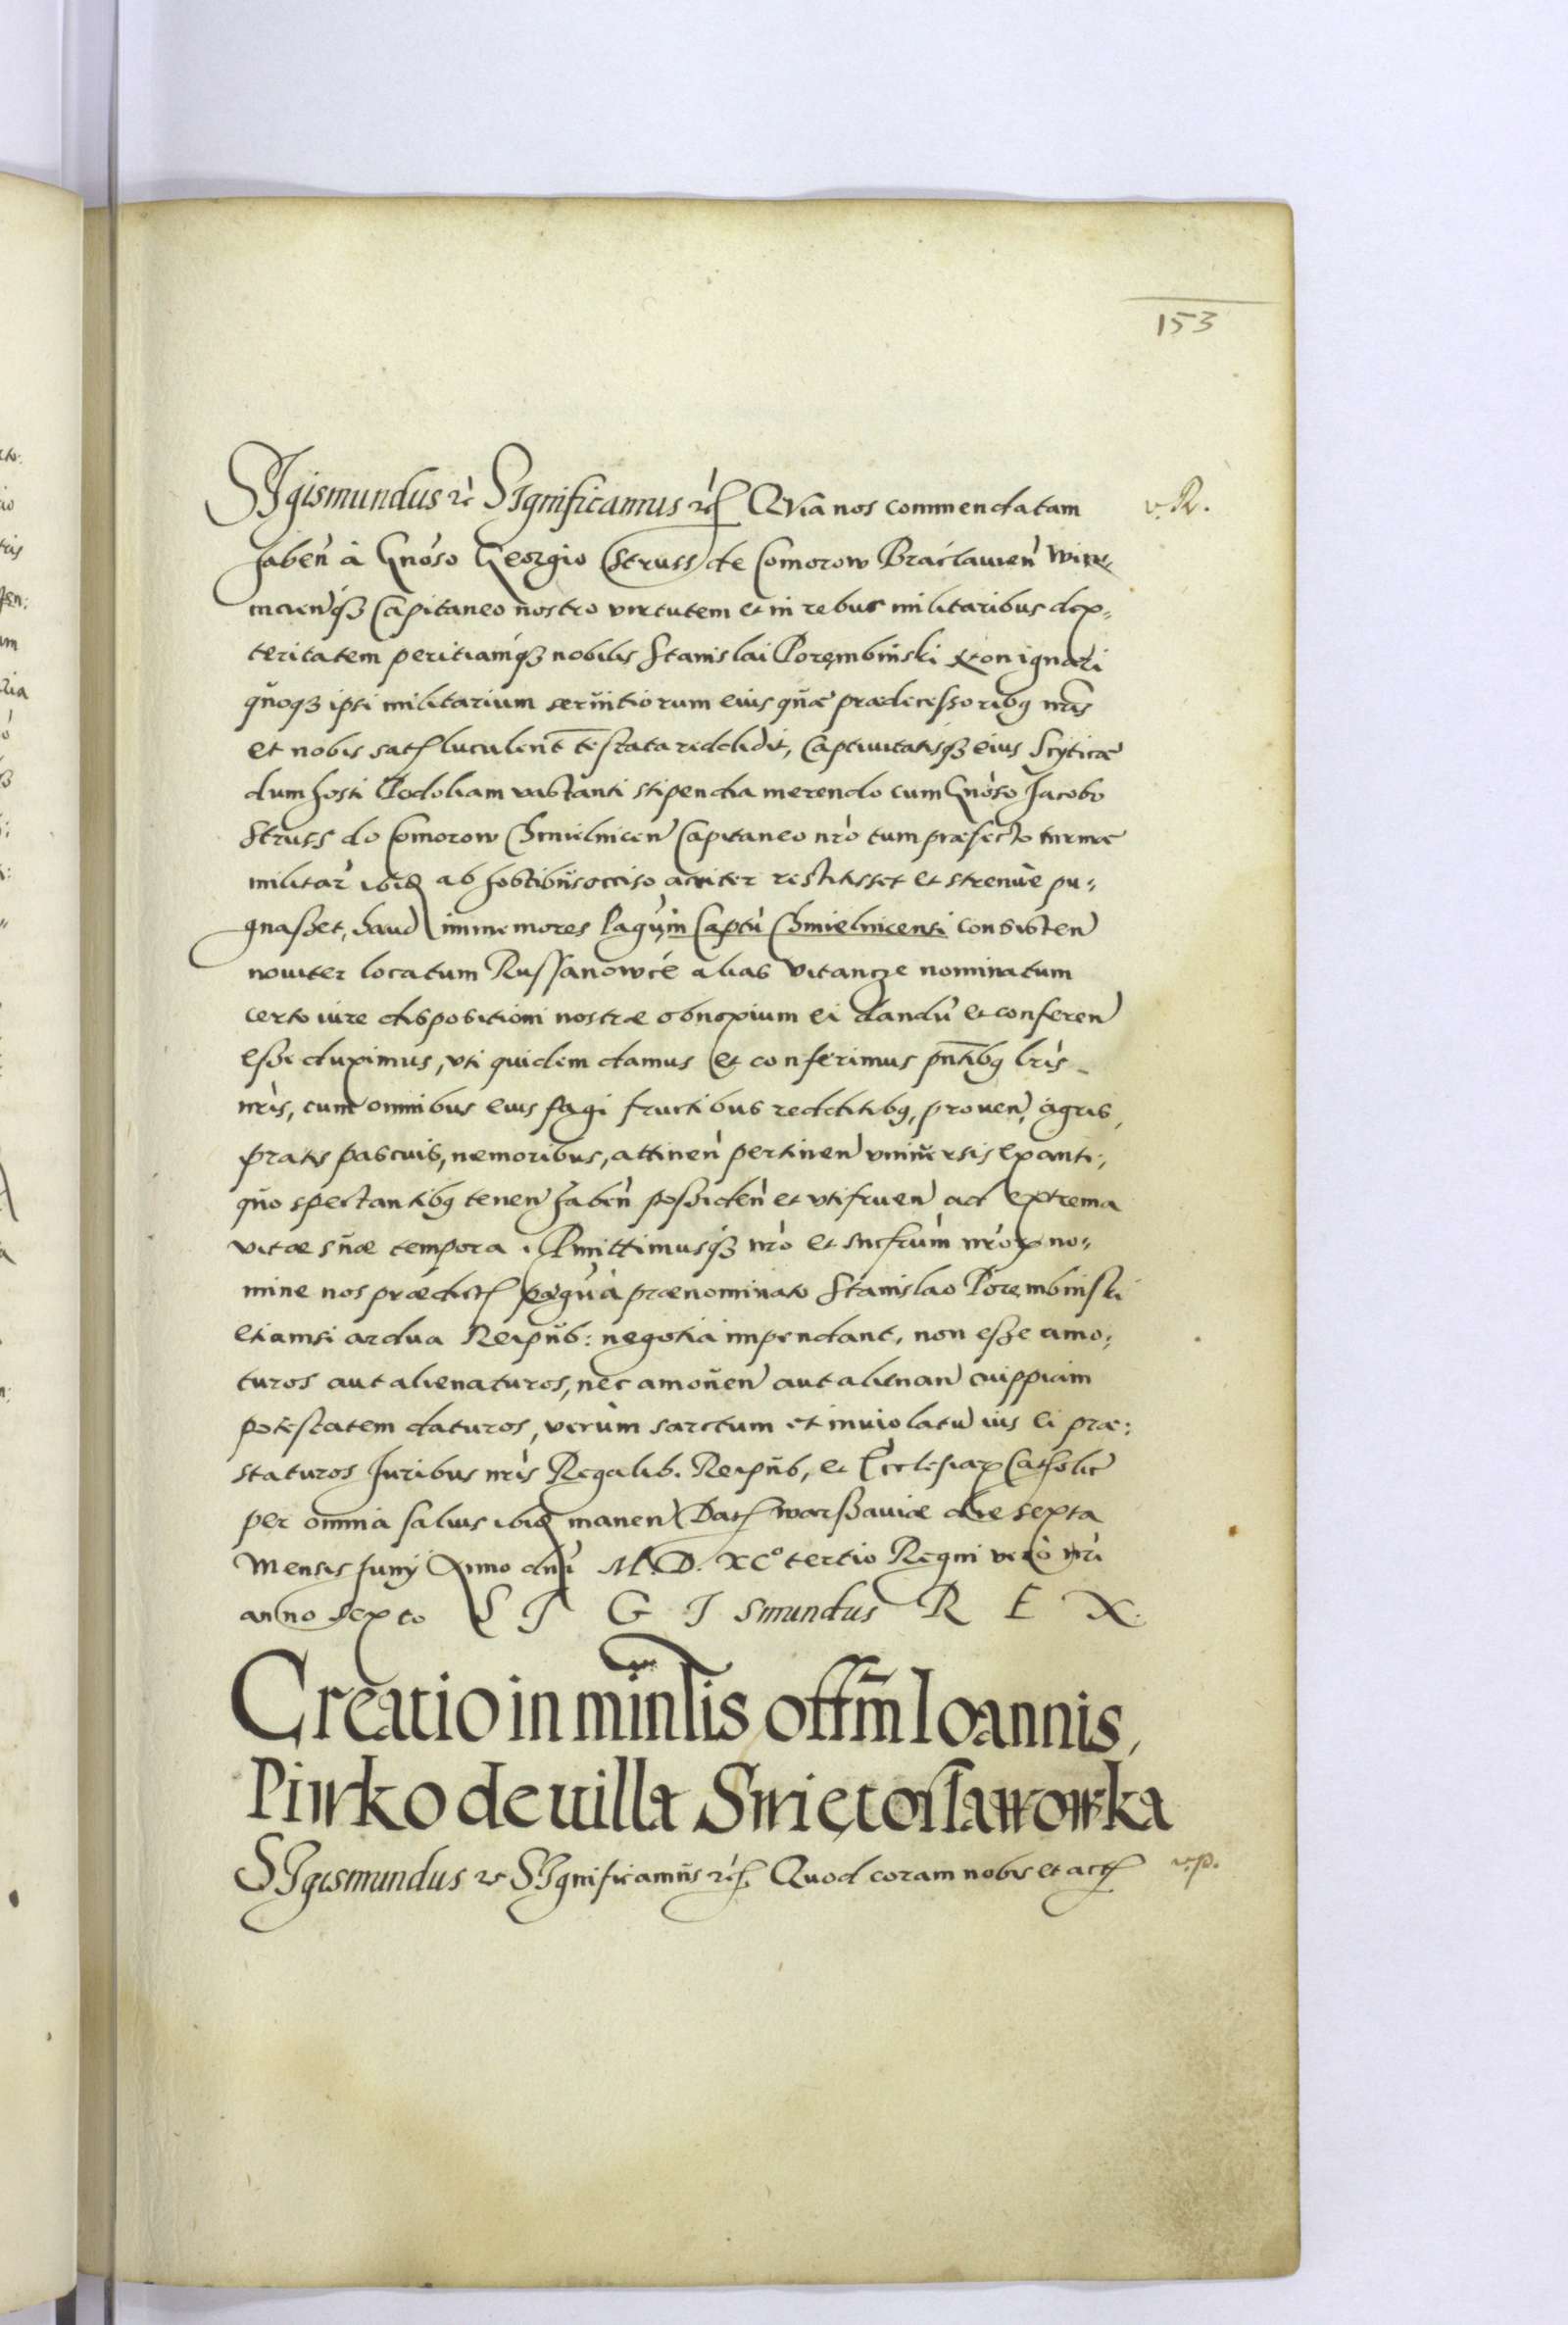 153
SIgismundus etc SIgnificamus etc QVia nos commendatam v. R.
haben à Gnoso Georgio Struss de Comorow Braclauien Win-
nicienq3 Capitaneo nostro virtutem et in rebus militaribus dex-
teritatem peritiamq3 nobilis Stanislai Porembinski Et non ignari
quoq3 ipsi militarium seruitiorum eius quae praedecessoribq nris
et nobis satis luculent testata reddidit, Captiuitatisq3 eius Scyticae
dum hosti Podoliam vastanti stipendia merendo cum Gnoso Jacobo
Struss de Comorow Chmielnicen Capitaneo nro tum praefecto turmae
militar ibid ab hostibus occiso acriter restitisset et strenue pu-
gnasset, haud immemores Pagum in Captu Chmielnicensi consisten
nouiter locatum Russanowce alias Vitancze nominatum
certo iure dispositioni nostrae obnoxium ei dandu et conferen
esse duximus, vti quidem damus et conferimus pntibq lris
nris, cum omnibus eius pagi fructibus redditibq, prouen, agris,
pratis pascuis, nemoribus, attinen pertinen vniuersis ex anti-
quo spectantibq tenen haben possiden et vtifruen ad extrema
vitae suae tempora. Pmittimusq3 nro et Sucsrum nror no-
mine nos praedict pagu à praenominato Stanislao Porembinski
etiamsi ardua Reipub: negotia impendant, non esse amo-
turos aut alienaturos, nec amouen aut alienan cuippiam
potestatem daturos, verum sarctum et inuiolatu ius ei prae-
staturos Juribus nris Regalib. Reipub, et Ecclesiar Catholic
per omnia saluis ibid manen Dat Warssauiae die sexta
Mensis Junij Anno dni M. D. XCo tertio Regni vero nri
anno sexto S I G I Smundus R E X.
Creatio in minlis offm Ioannis,
Piwko de uilla Swiętosławowka
SIgismundus etc SIgnificamus etc. Quod coram nobis et act v. p.